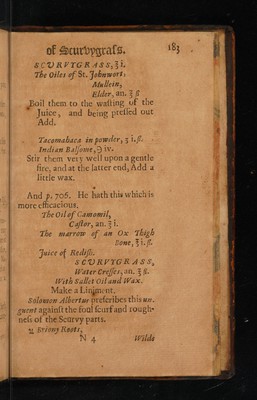 of Scurvygraſs. 183
SCURVYGRASS, ℥ i.
The Oiles of St. Johnwort,
Mullein,
Elder, an. ℥ ß
Boil them to the waſting of the
Juice, and being preſſed out
Add.
Tacamahaca in powder, ʒ i.ß.
Indian Balſome, ℈ iv.
Stir them very well upon a gentle
fire, and at the latter end, Add a
little wax.
And p. 706. He hath this which is
more efficacious.
The Oil of Camomil,
Caſtor, an. ℥ i.
The marrow of an Ox Thigh
Bone, ℥ i. ß.
Juice of Rediſh.
SCURVYGRASS,
Water Creſſes, an. ℥ ß.
With Sallet Oil and Wax.
Make a Liniment.
Solomon Albertus preſcribes this un-
guent againſt the foul ſcurf and rough-
neſs of the Scurvy parts.
♃ Briony Roots,
N 4 Wilde